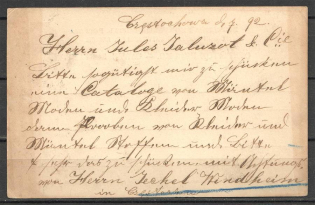 Częstochowa d. 7. 92.
Herrn Jules Jaluzot & Cie
Bitte so gütigst mir zu schicken
eine Cataloge von Mäntel
Moden und Kleider Moden
dann Prooben von Kleider und
Mäntel Stoffen und Bitte
sehr das zu schicken mit
von Herrn Windheim
in